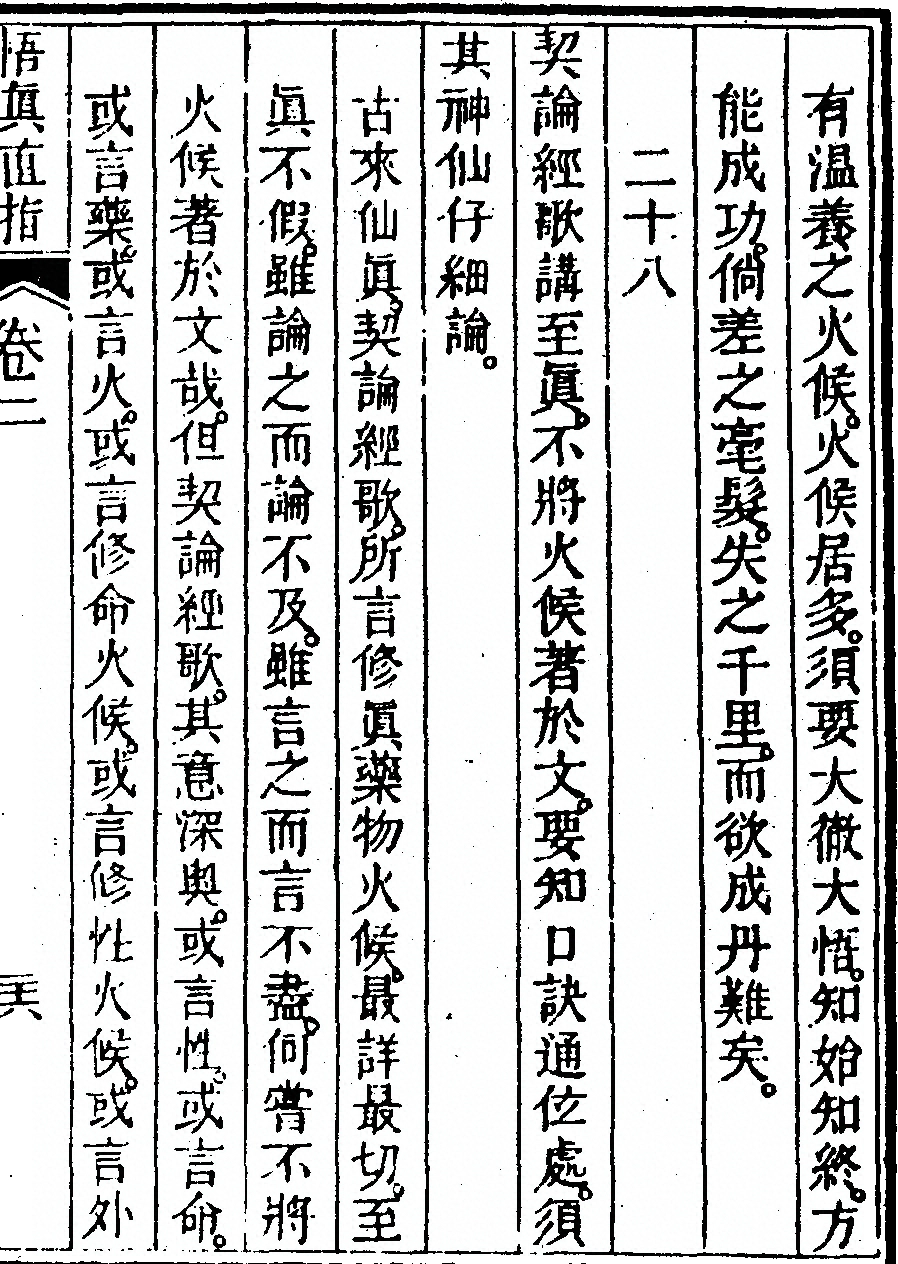 有温養之火候。火候居多。須要大徹大悟。知始知終。方
能成功。倘差之毫髮。失之千里。而欲成丹難矣。
二十八
契論經歌講至眞。不將火候著於文。要知口訣通位處。須
共神仙仔細論。
古來仙眞。契論經歌。所言修眞藥物火候。最詳最切。至
眞不假。雖論之而論不及。雖言之而言不盡。何嘗不將
火候著於文哉。但契論經歌。其意深奥。或言性。或言命。
或言藥。或言火。或言修命火候。或言修性火候。或言外
悟眞直指 卷二 二六